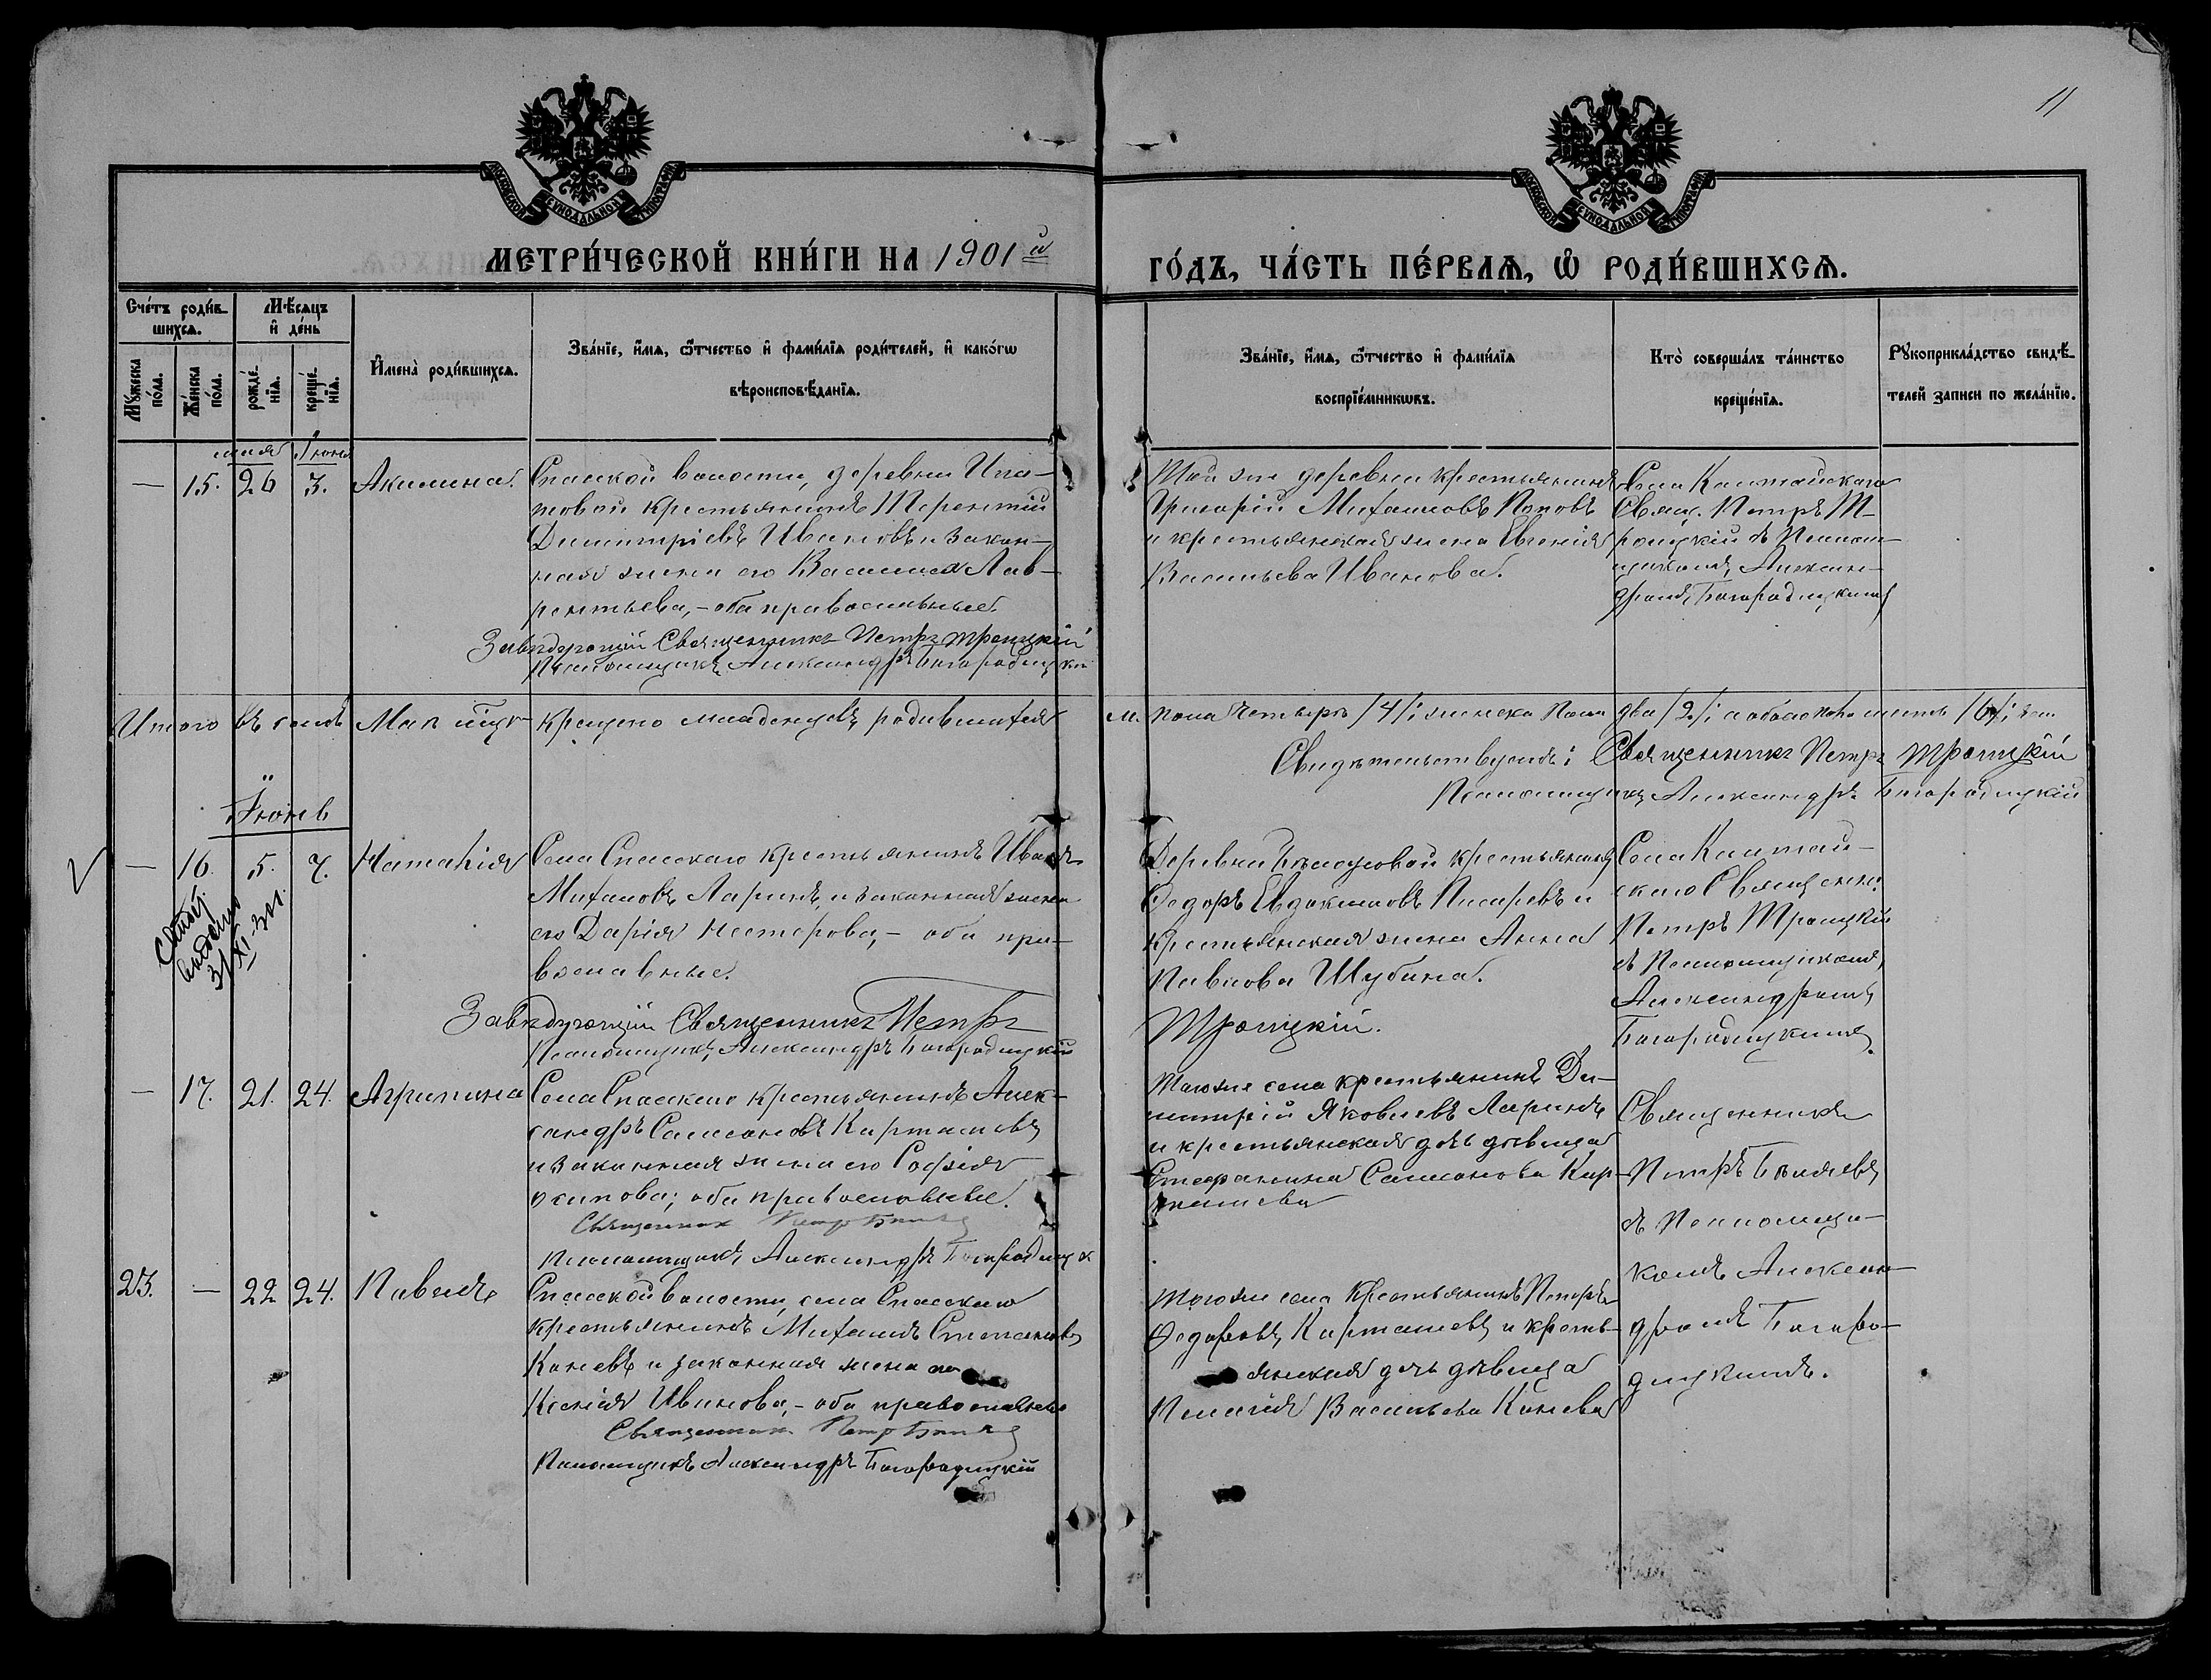 11
МОСКОВСКОЙ СѴНОДАЛЬНОЙ ТИПОГРАФІИ
МОСКОВСКОЙ СѴНОДАЛЬНОЙ ТИПОГРАФІИ
МЕТРИ́ЧЕСКОЙ КНИ́ГИ НА 1901й
ГО́ДЪ, ЧА́СТЬ ПЕ́РВАѦ, Ѡ҆ РОДИ́ВШИХСѦ.
Сче́тъ роди́в-
шихсѧ.
Мѣ́сѧцъ
и҆ де́нь
Мꙋ́жеска
по́ла.
Же́нска
по́ла.
рожде́-
нїѧ.
креще́-
нїѧ.
И҆мена̀ роди́вшихсѧ.
Зва́нїе, и҆́мѧ, ѻ҆́тчество и҆ фами́лїѧ роди́телей, и҆ како́гѡ
вѣроисповѣ́данїѧ.
Зва́нїе, и҆́мѧ, ѻ҆́тчество и҆ фами́лїѧ
воспрїе́мникѡвъ.
Кто̀ соверша́лъ та́инство
креще́нїѧ.
Рꙋкоприкла́дство свидѣ́-
телей записи по жела́нїю.
мая Іюня
— 15. 26 3. Акилина.
Спасской волости, деревни Ипа-
товой крестьянинъ Терентій
Димитріевъ Ивановъ и закон-
ная жена его Василиса Лав-
рентьева, - оба православные.
Завѣдующій Священникъ Петръ Троицкій
Псаломщикъ Александръ Богородицкій
Той же деревни крестьянинъ
Григорій Михаиловъ Поповъ
и крестьянская жена Евгенія
Васильева Иванова.
Села Каптайскаго
Свящ. Петръ Т-
роицкій съ Псалом-
щикомъ Алексан-
дромъ Богородицкимъ
Итого въ семъ Маѣ мцѣ крещено младенцевъ родившихся
м. пола четыре /4/; женска пола два /2/; а обоего пола шесть /6/; чел.
Свидѣтельствуемъ: Священникъ Петръ Троицкій
Псаломщикъ Александръ Богородицкій
Іюнь
— 16. 5. 7. Наталія
Села Спасскаго крестьянинъ Иванъ
Михаиловъ Ларинъ, и законная жена
его Дарія Нестерова, - оба пра-
вославные.
Завѣдующій Священникъ Петръ
Псаломщикъ Александръ Богородицкій
Деревни крестьянинъ
Ѳедоръ Евдокимовъ Писаревъ и
крестьянская жена Анна
Павлова Шубина.
Троицкій.
Села Каптай-
скаго Священн.
Петръ Троицкій
съ Псаломщикомъ
Александромъ
Богородицкимъ.
31/XI 31.
— 17. 21. 24. Агрипина
Села Спасскаго крестьянинъ Алек-
сандръ Самсоновъ Карташевъ
и законная жена его Софія
Осипова; оба православные.
Священник Петр
Псаломщикъ Александръ Богородицк
Тогоже села крестьянинъ Ди-
митрій Яковлевъ Ларинъ
и крестьянская дочь дѣвица
Стефанида Самсонова Кар-
ташева
Священникъ
Петръ Бѣляевъ
съ Псаломщи-
комъ Алексан-
дромъ Богоро-
дицкимъ.
23. — 22 24. Павелъ
Спасской волости, села Спасскаго
крестьянинъ Михаилъ Степановъ
Каневъ и законная жена его
Ксенія Иванова, - оба православные
Священник Петр
Псаломщикъ Александръ Богородицкій
Тогоже села крестьянинъ Петръ
Ѳедоровъ Карташевъ и кресть-
янская дочь дѣвица
Пелагія Васильева Канева